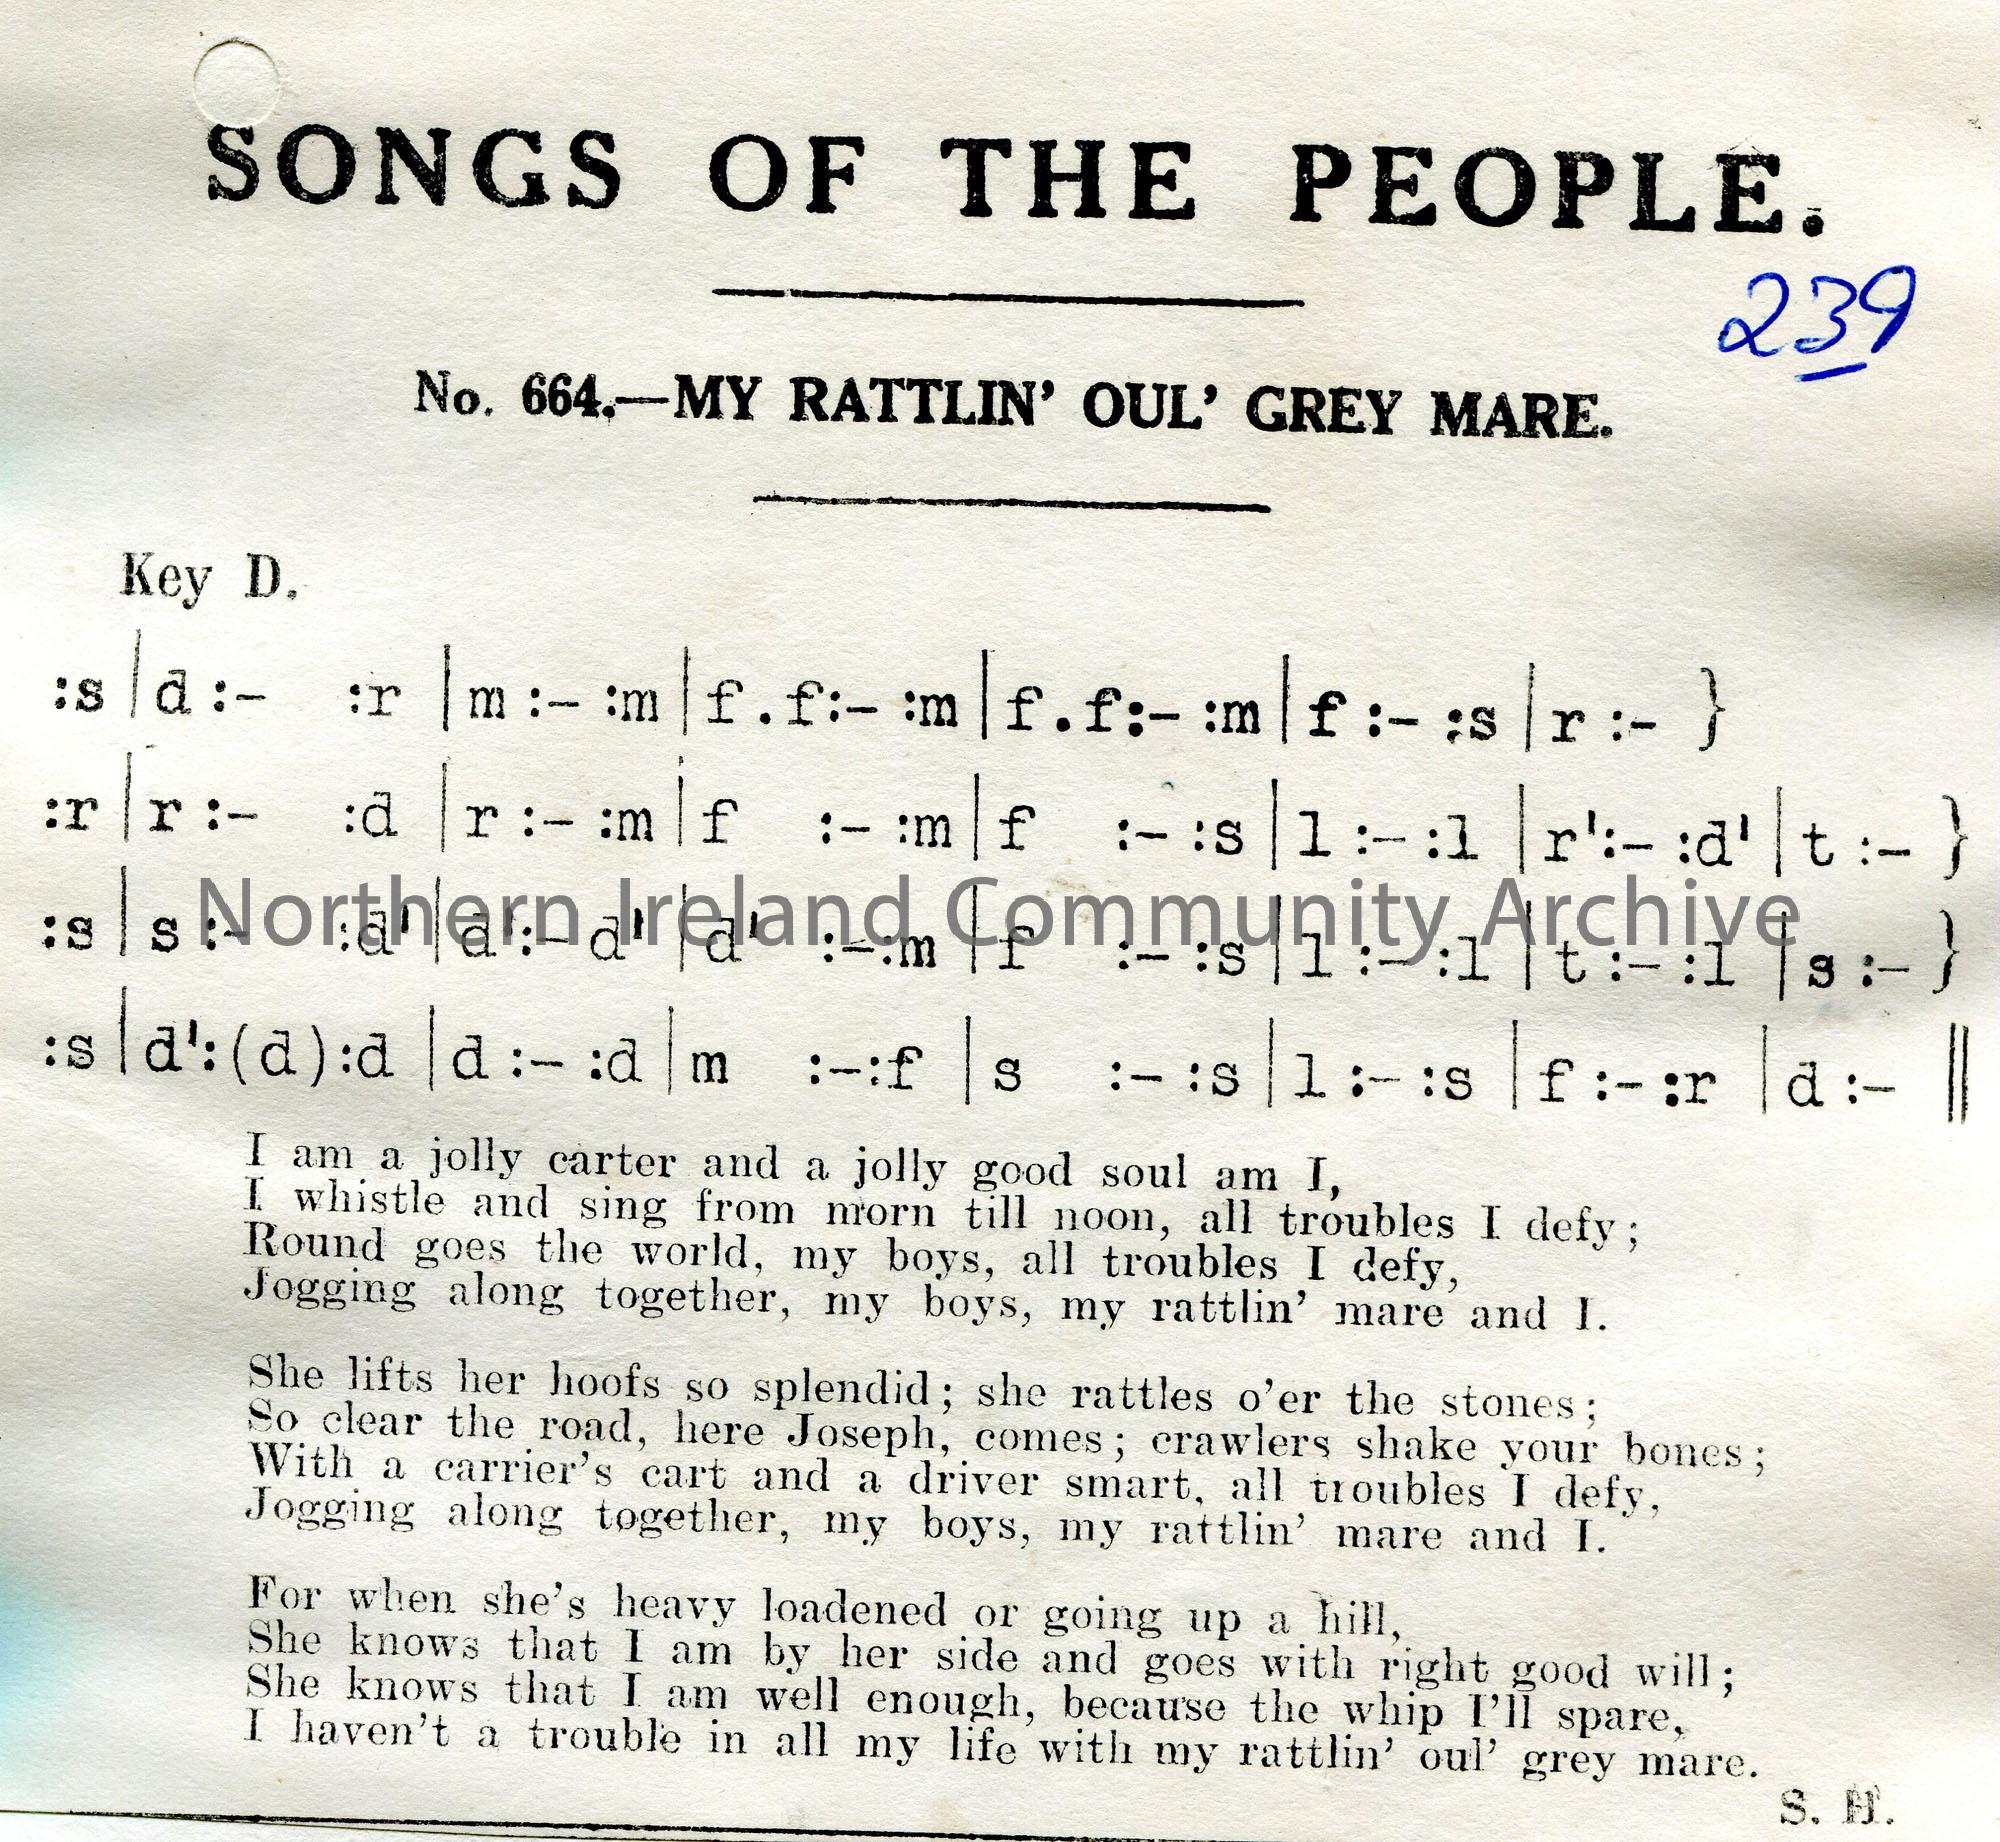 SONGS OF THE PEOPLE.
239
No. 664.—MY RATTLIN' OUL' GREY MARE.
Key D.
:s | d :– :r | m :– :m | f . f :– :m | f . f :– :m | f :– :s | r :– }
:r | r :– :d | r :– :m | f :– :m | f :– :s | l :– :l | r' :– :d' | t :– }
:s | s :– :d' | d' :– d' | d' :– :m | f :– :s | l :– :l | t :– :l | s :– }
Northern Ireland Community Archive
:s | d' : (d) :d | d :– :d | m :– :f | s :– :s | l :– :s | f :– :r | d :– ||
I am a jolly carter and a jolly good soul am I,
I whistle and sing from morn till noon, all troubles I defy;
Round goes the world, my boys, all troubles I defy,
Jogging along together, my boys, my rattlin' mare and I.
She lifts her hoofs so splendid; she rattles o'er the stones;
So clear the road, here Joseph, comes; crawlers shake your bones;
With a carrier's cart and a driver smart, all troubles I defy,
Jogging along together, my boys, my rattlin' mare and I.
For when she's heavy loadened or going up a hill,
She knows that I am by her side and goes with right good will;
She knows that I am well enough, because the whip I'll spare,
I haven't a trouble in all my life with my rattlin' oul' grey mare.
S. H.